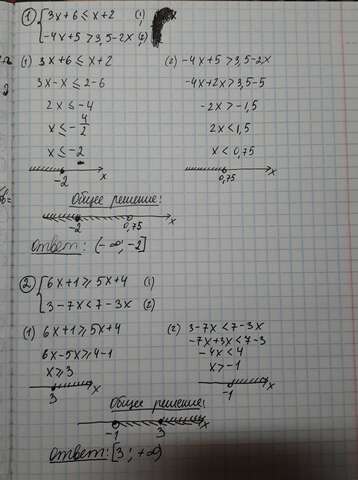 ① { 3x+6 ≤ x+2 (1)
-4x+5 > 3,5-2x (2)
(1) 3x+6 ≤ x+2
3x-x ≤ 2-6
2x ≤ -4
x ≤ -4/2
x ≤ -2
-2 x
(2) -4x+5 > 3,5-2x
-4x+2x > 3,5-5
-2x > -1,5
2x < 1,5
x < 0,75
0,75 x
Общее решение:
-2 0,75 x
Ответ: (-∞; -2]
② { 6x+1 ≥ 5x+4 (1)
3-7x < 7-3x (2)
(1) 6x+1 ≥ 5x+4
6x-5x ≥ 4-1
x ≥ 3
3 x
(2) 3-7x < 7-3x
-7x+3x < 7-3
-4x < 4
x > -1
-1 x
Общее решение:
-1 3 x
Ответ: [3; +∞)